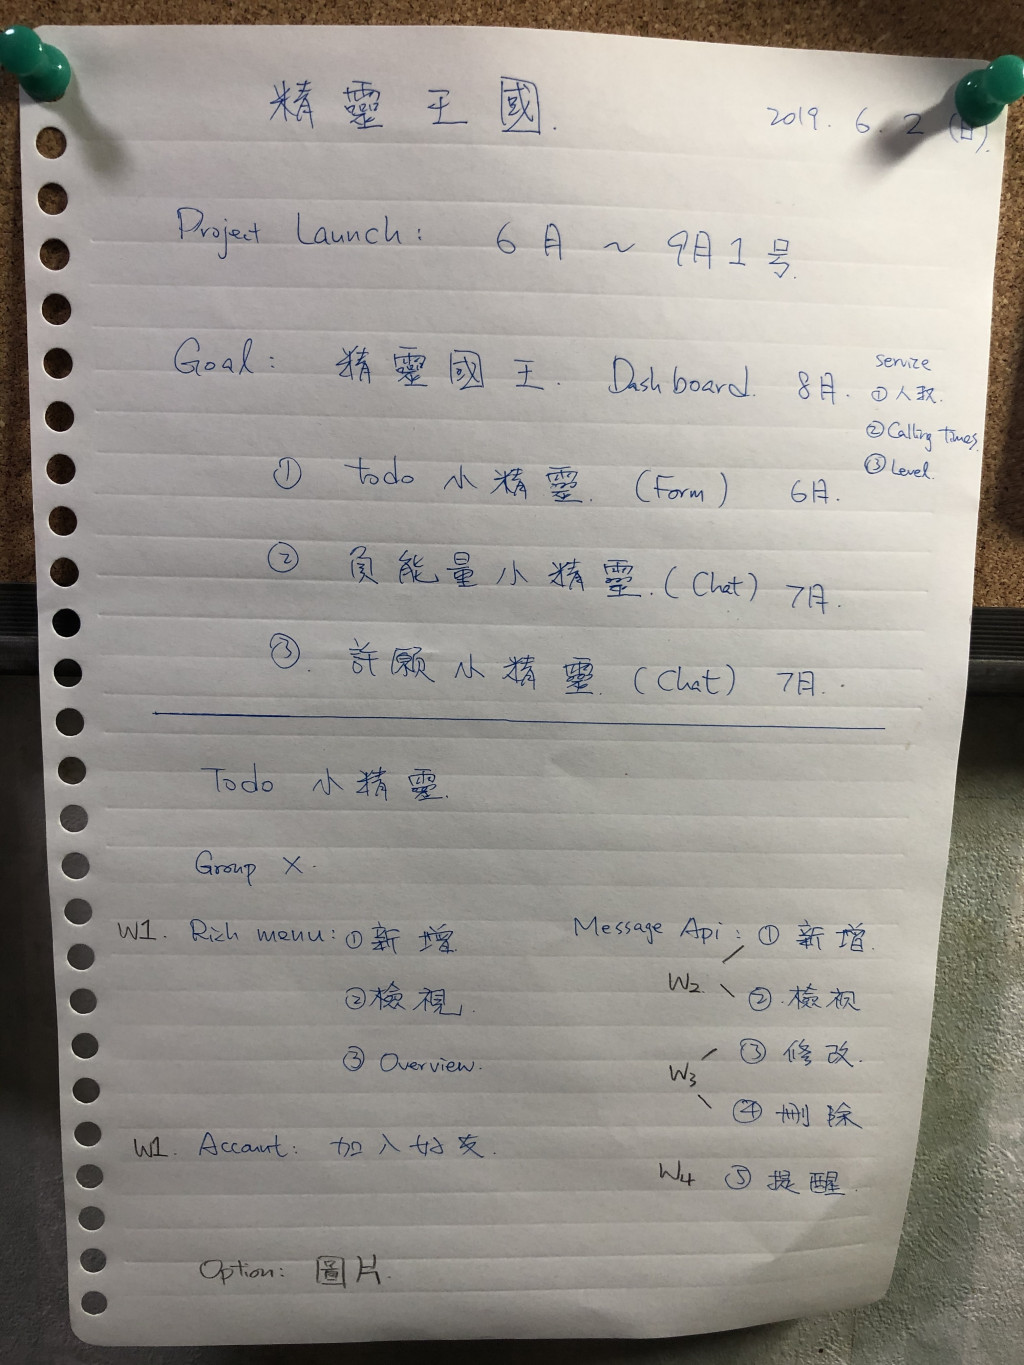 精靈王國.
2019. 6. 2 (日).
Project Launch: 6月 ~ 9月1号.
Goal: 精靈國王. Dashboard. 8月.
service
① 人數.
② Calling times.
③ Level.
① todo 小精靈. (Form) 6月.
② 負能量小精靈. (Chat) 7月.
③. 許願小精靈. (Chat) 7月.
Todo 小精靈.
Group X.
W1. Rich menu: ① 新增.
② 檢視.
③ Overview.
W1. Account: 加入好友.
Message Api: ① 新增.
W2. ② 檢視
W3 ③ 修改.
④ 刪除
W4 ⑤ 提醒.
Option: 圖片.